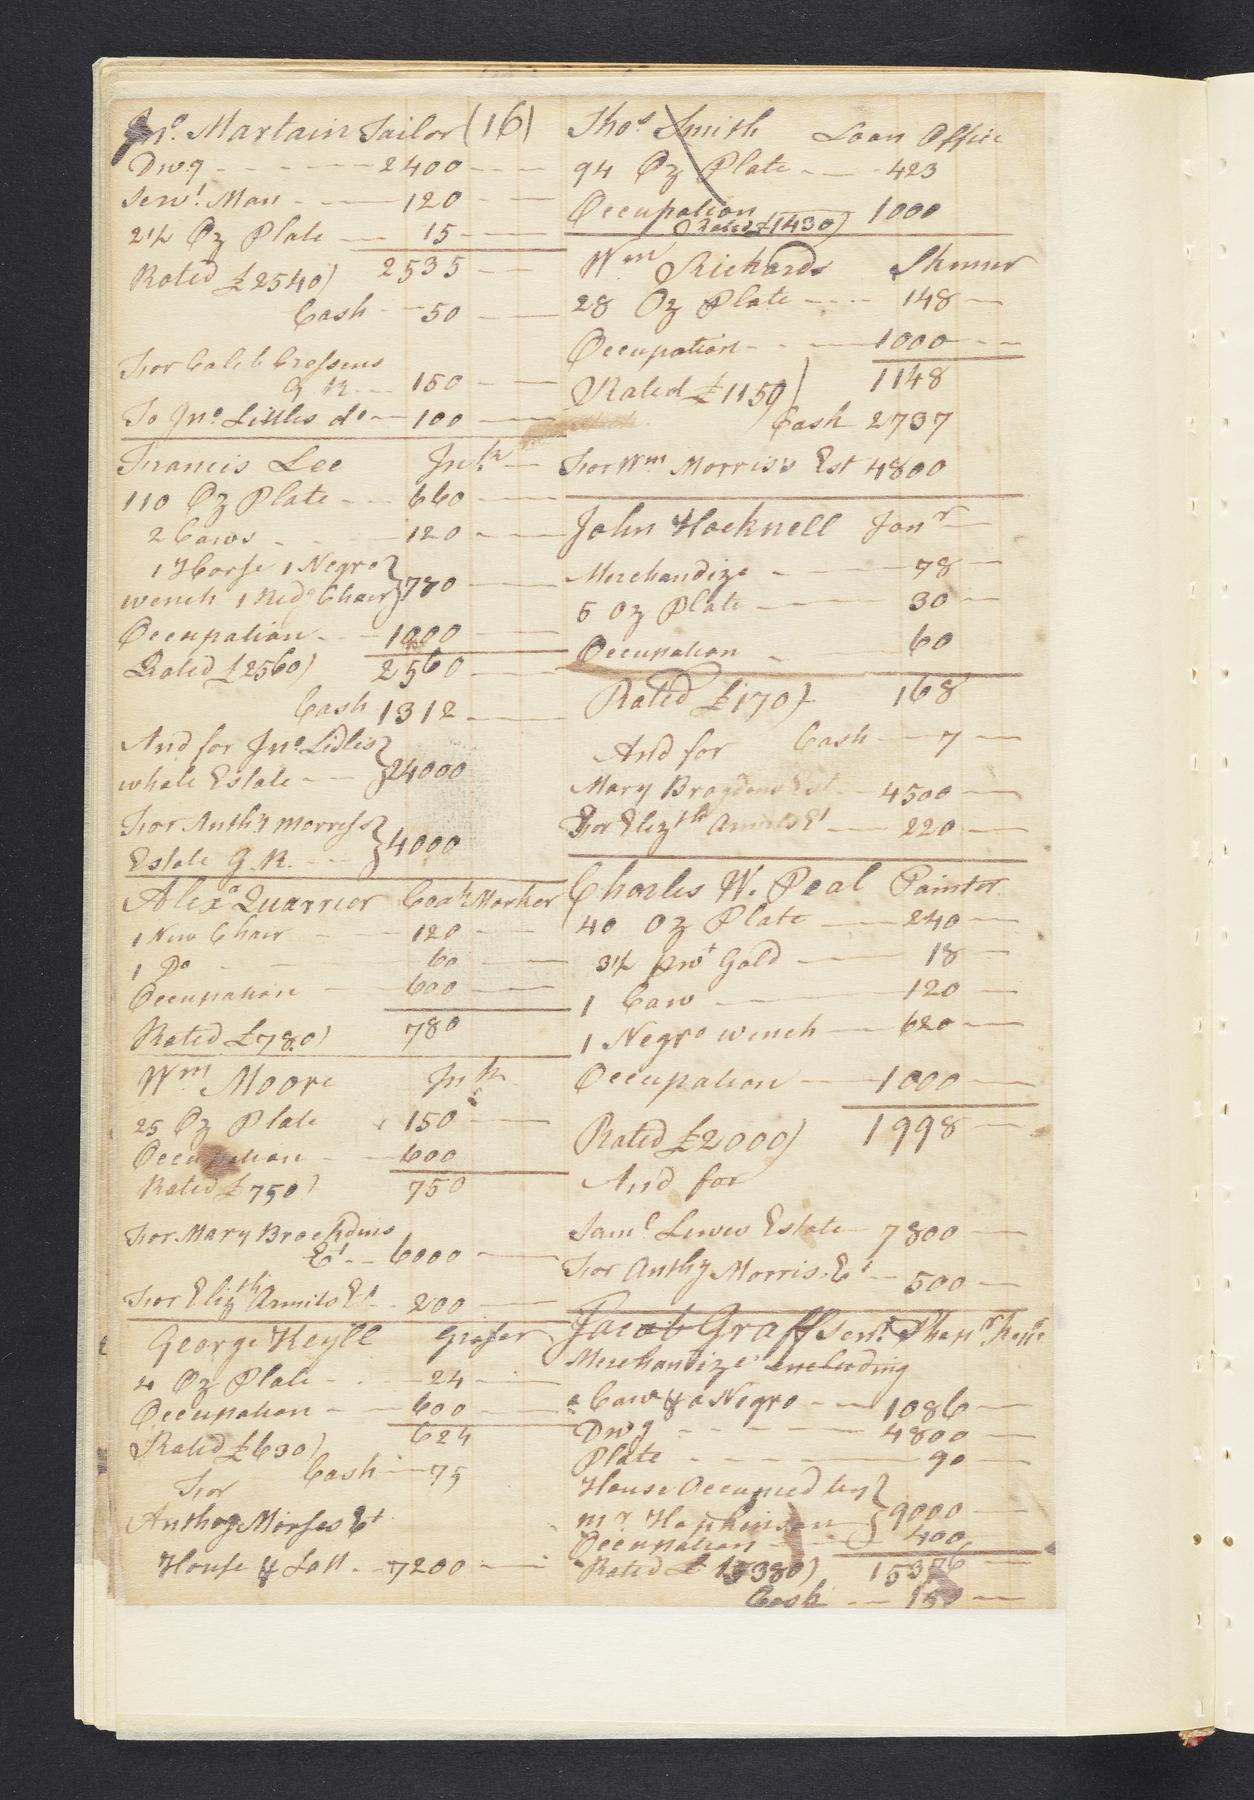 Jno. Martain Tailor (16)
Dwg 2400
Servt. Man 120
2½ Oz Plate 15
Rated £2540) 2535
Cash 50
For Caleb Cressens
G R 150
To Jno. Littles do 100
Francis Lee Ink
110 Oz Plate 660
2 Cows 120
1 Horse 1 Negro
wench 1 Chair } 780
Occupation 1000
Rated £2560) 2560
Cash 1312
And for Jno. Lidles
whole Estate } 24000
For Anthy morriss
Estate G. R. } 4000
Alexa Quarrier Coah Marker
1 New Chair 120
1 Do 60
Occupation 600
Rated £780) 780
Wm Moore Ink
25 Oz Plate 150
Occupation 600
Rated £750) 750
For Mary Brockdins
Et 6000
For Elizth Armits Et 200
George Keyll Graser
4 Oz Plate 24
Occupation 600
624
Rated £630)
Cash 75
For
Anthoy Morses Et
House & Lott 7200
Thos Smith Loan Office
94 Oz Plate 423
Occupation 1000
Rated £1430)
Wm Richards Skinner
28 Oz Plate 148
Occupation 1000
Rated £1150) 1148
Cash 2737
For Wm Morris's Est 4800
John Hocknell Jonr
Merchandize 78
5 Oz Plate 30
Occupation 60
Rated £170) 168
And for Cash 7
Mary Brogdens Est 4500
For Elizth Armits Et 220
Charles W. Peal Painter
40 Oz Plate 240
3½ pwt Gold 18
1 Caw 120
1 Negro wench 620
Occupation 1000
Rated £2000) 1998
And for
Saml Lewes Estate 7800
For Anthy Morris Et 500
Jacob Graff Senr
Merchandize including
a Caw & a Negro 1086
Dwg 4800
Plate 90
House Occupied by
mr Hopkinson } 9000
Occupation 400
Rated £15380) 15376
Cash 150